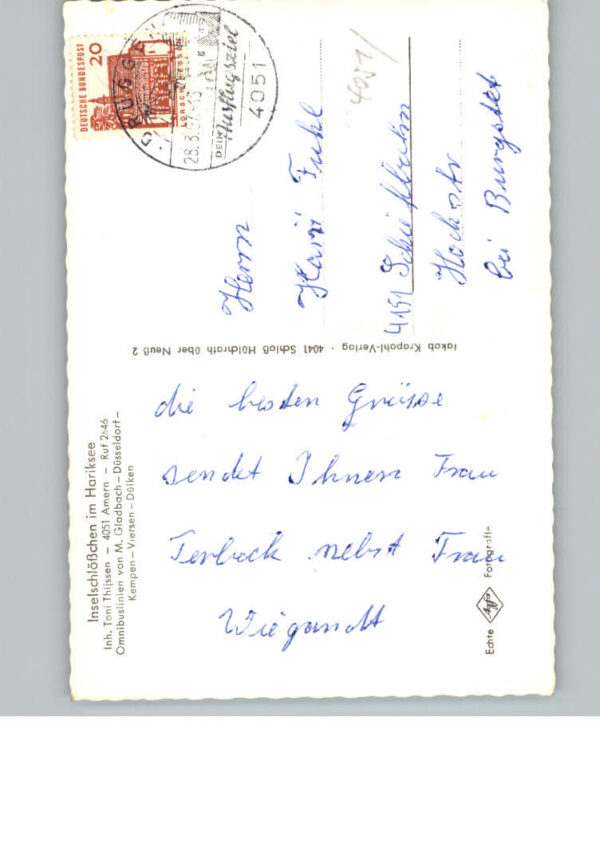 Inselschlößchen im Hariksee
Inh. Toni Thijssen – 4051 Amern – Ruf 2646
Omnibuslinien von M. Gladbach – Düsseldorf –
Kempen – Viersen – Dülken
die besten Grüsse
sendet Ihnen Frau
Terbeck nebst Frau
Wiegandt
Echte Agfa Fotografie-
Jakob Krapohl-Verlag · 4041 Schloß Hülchrath über Neuß 2
DEUTSCHE BUNDESPOST
20
BRÜGGEN
28.3.
DEIN
Ausflugsziel
4051
4051
Herrn
Fuhl
4151 Schiefbahn
Hochstr
bei Burgstet